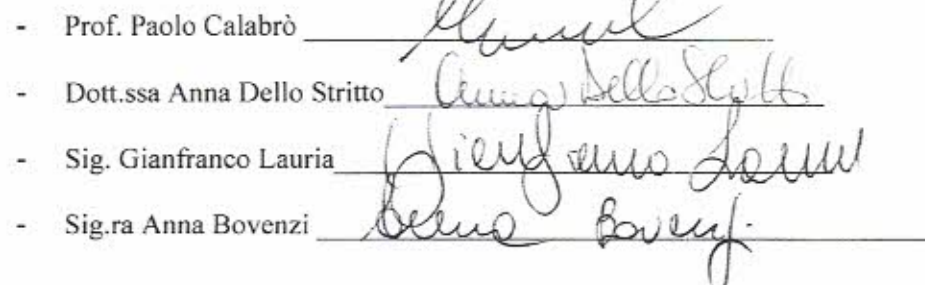 - Prof. Paolo Calabrò
- Dott.ssa Anna Dello Stritto Anna Dello Stritto
- Sig. Gianfranco Lauria Gianfranco Lauria
- Sig.ra Anna Bovenzi Anna Bovenzi